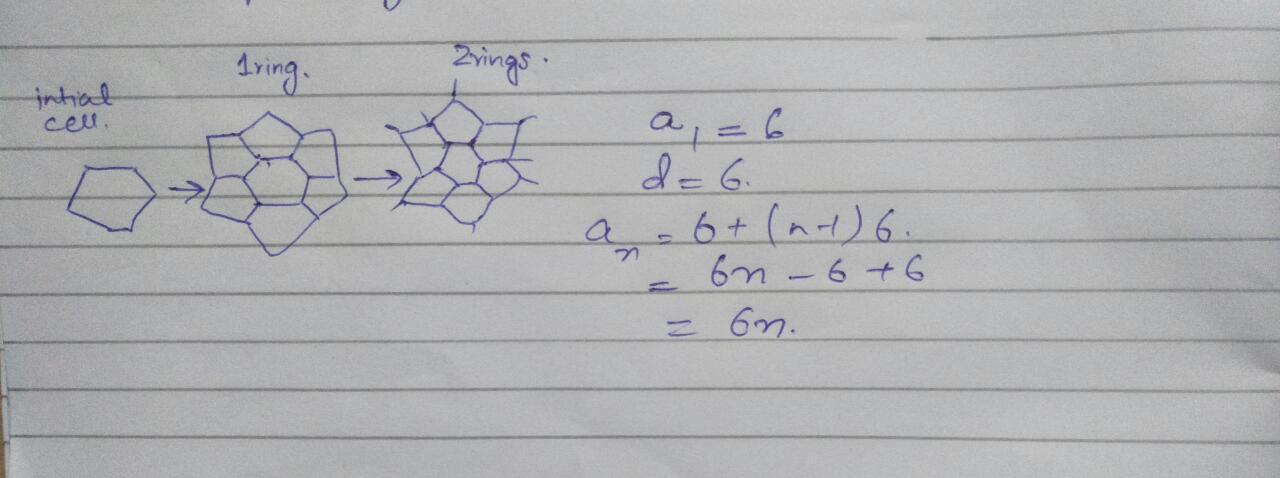 1ring.
2rings.
intial
cell.
a₁ = 6
d = 6.
aₙ = 6 + (n-1) 6.
= 6n - 6 + 6
= 6n.